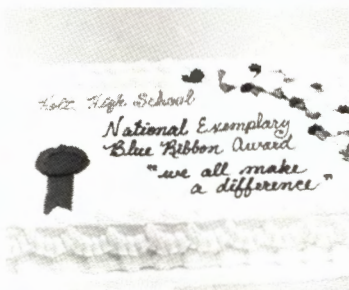 Holt High School
National Exemplary
Blue Ribbon Award
"we all make
a difference"